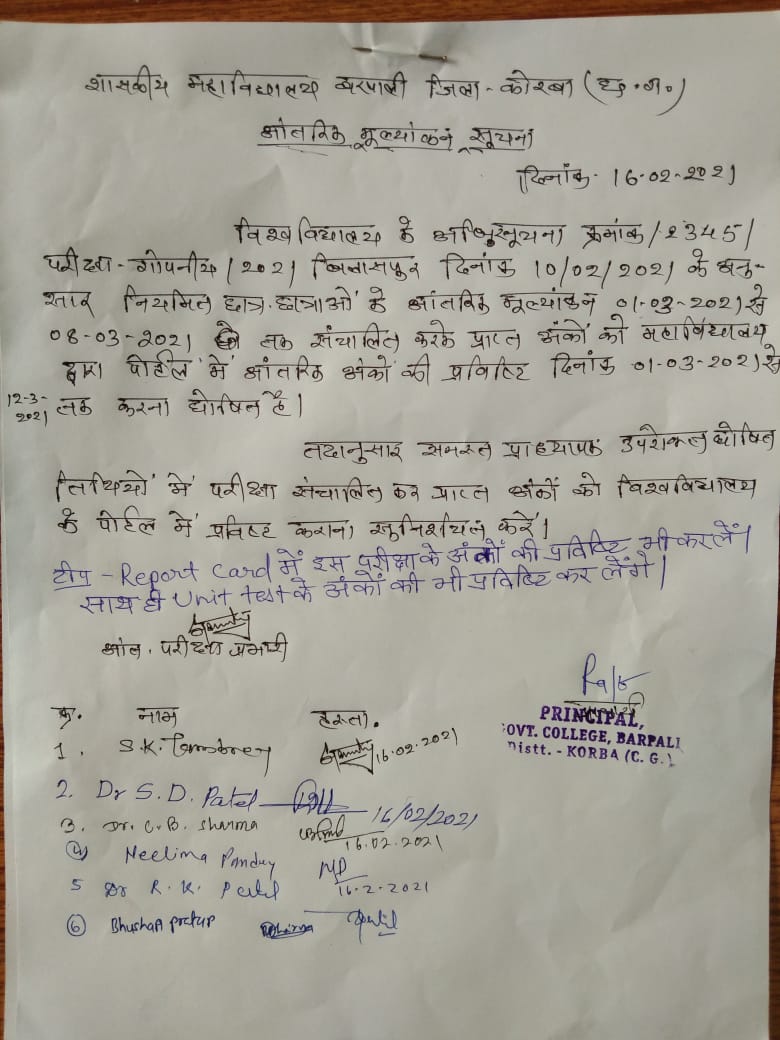 शासकीय महाविद्यालय बरपाली जिला - कोरबा (छ.ग.)
आंतरिक मूल्यांकन सूचना
दिनांक - 16-02-2021
विश्वविद्यालय के अधिसूचना क्रमांक / 2345 /
परीक्षा - गोपनीय / 2021 बिलासपुर दिनांक 10/02/2021 के अनु-
सार नियमित छात्र-छात्राओं के आंतरिक मूल्यांकन 01-03-2021 से
08-03-2021 तक संचालित करके प्राप्त अंकों को महाविद्यालय
द्वारा पोर्टल में आंतरिक अंकों की प्रविष्टि दिनांक 01-03-2021 से
12-3-2021 तक करना घोषित है।
तदानुसार समस्त प्राध्यापक उपरोक्त घोषित
तिथियों में परीक्षा संचालित कर प्राप्त अंकों को विश्वविद्यालय
के पोर्टल में प्रविष्ट कराना सुनिश्चित करें।
टीप - Report Card में इस परीक्षा के अंकों की प्रविष्टि भी कर लें।
साथ ही Unit test के अंकों की भी प्रविष्टि कर लेंगे।
आंत. परीक्षा प्रभारी
PRINCIPAL,
GOVT. COLLEGE, BARPALI
Distt. - KORBA (C.G.)
क्र. नाम हस्ता.
1. S.K. 16.02.2021
2. Dr S.D. Patel 16/02/2021
3. Dr. C.B. Sharma 16.02.2021
4 Neelima Pandey NP 16.2.2021
5 Dr R.K. Patel
6 Bhushan